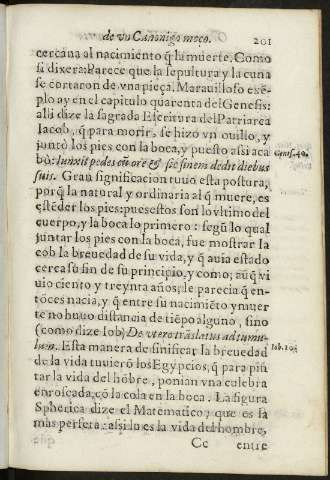 de vn Canonigo moço. 201
cercana al nacimiento q̃ la muerte. Como
si dixera: Parece que la sepultura y la cuna
se cortaron de vna pieça. Marauilloso exẽ-
plo ay en el capitulo quarenta del Genesis:
alli dize la sagrada Escritura del Patriarca
Iacob, q̃ para morir se hizo vn ouillo, y
juntò los pies con la boca, y puesto assi aca
bò: Iunxit pedes cũ ore & sic finem dedit diebus
Genes. 40.
suis. Gran significacion tuuo esta postura,
porq̃ la natural y ordinaria al q̃ muere, es
estẽder los pies: pues estos son lo vltimo del
cuerpo, y la boca lo primero: segũ lo qual
juntar los pies con la boca, fue mostrar Ia
cob la breuedad de su vida, y q̃ auia estado
cerca su fin de su principio, y como, aũq̃ vi
uio ciento y treynta años, le parecia q̃ en-
tõces nacia, y q̃ entre su nacimiẽto y muer
te no huuo distancia de tiẽpo alguno, sino
(como dize Iob) De vtero trãslatus ad tumu-
lum. Esta manera de sinificar la breuedad
Iob. 10.
de la vida tuuierõ los Egypcios, q̃ para pin
tar la vida del hõbre, ponian vna culebra
enroscada, cõ la cola en la boca. La figura
Spherica dize el Matematico, que es la
mas perfeta: assi lo es la vida del hombre,
Cc entre